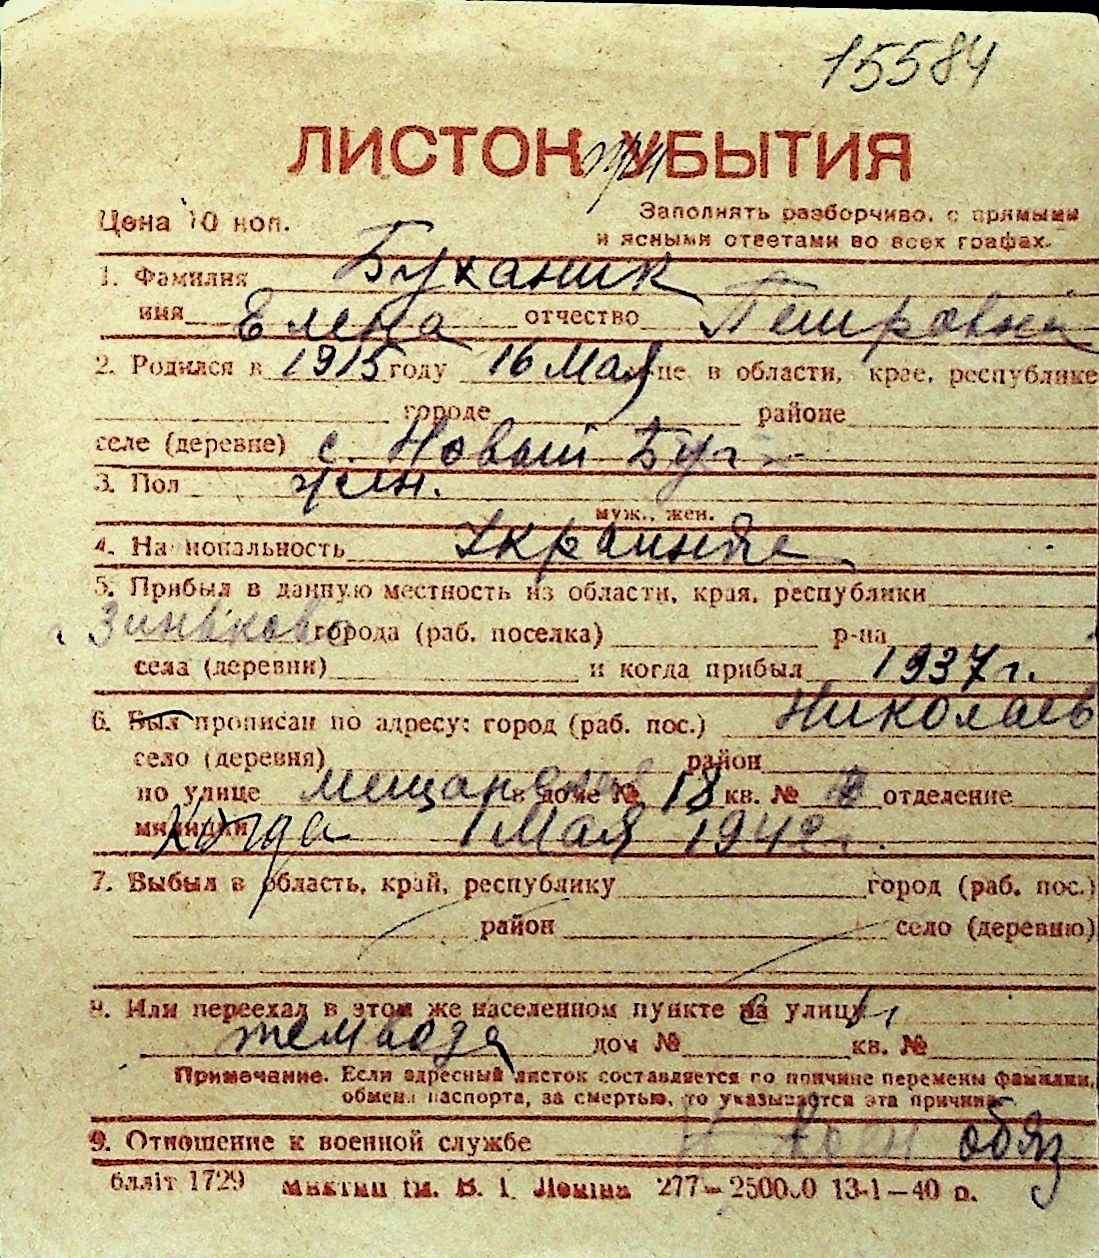 15584
ЛИСТОК при УБЫТИЯ
Цена 10 коп.
Заполнять разборчиво, с прямыми
и ясными ответами во всех графах.
1. Фамилия Буханик
имя Елена отчество Петровна
2. Родился в 1915 году 16 Мая це в области, крае, республике
городе районе
селе (деревне) с. Новый Буг
3. Пол жен.
муж., жен.
4. Национальность Украинка
5. Прибыл в данную местность из области, края, республики
Зиньково города (раб. поселка) р-на
села (деревни) и когда прибыл 1937 г.
6. Был прописан по адресу: город (раб. пос.) Николаев
село (деревня) район
по улице в доме № 18 кв. № отделение
милиции Когда 1 Мая 194 г.
7. Выбыл в область, край, республику город (раб. пос.)
район село (деревню)
8. Или переехал в этом же населенном пункте на улицу
дом № кв. №
Примечание. Если адресный листок составляется по причине перемены фамилии,
обмена паспорта, за смертью, то указывается эта причина.
9. Отношение к военной службе воен обяз
бллiт 1729 iм. В. I. Ленiна 277— 13-1—40 р.